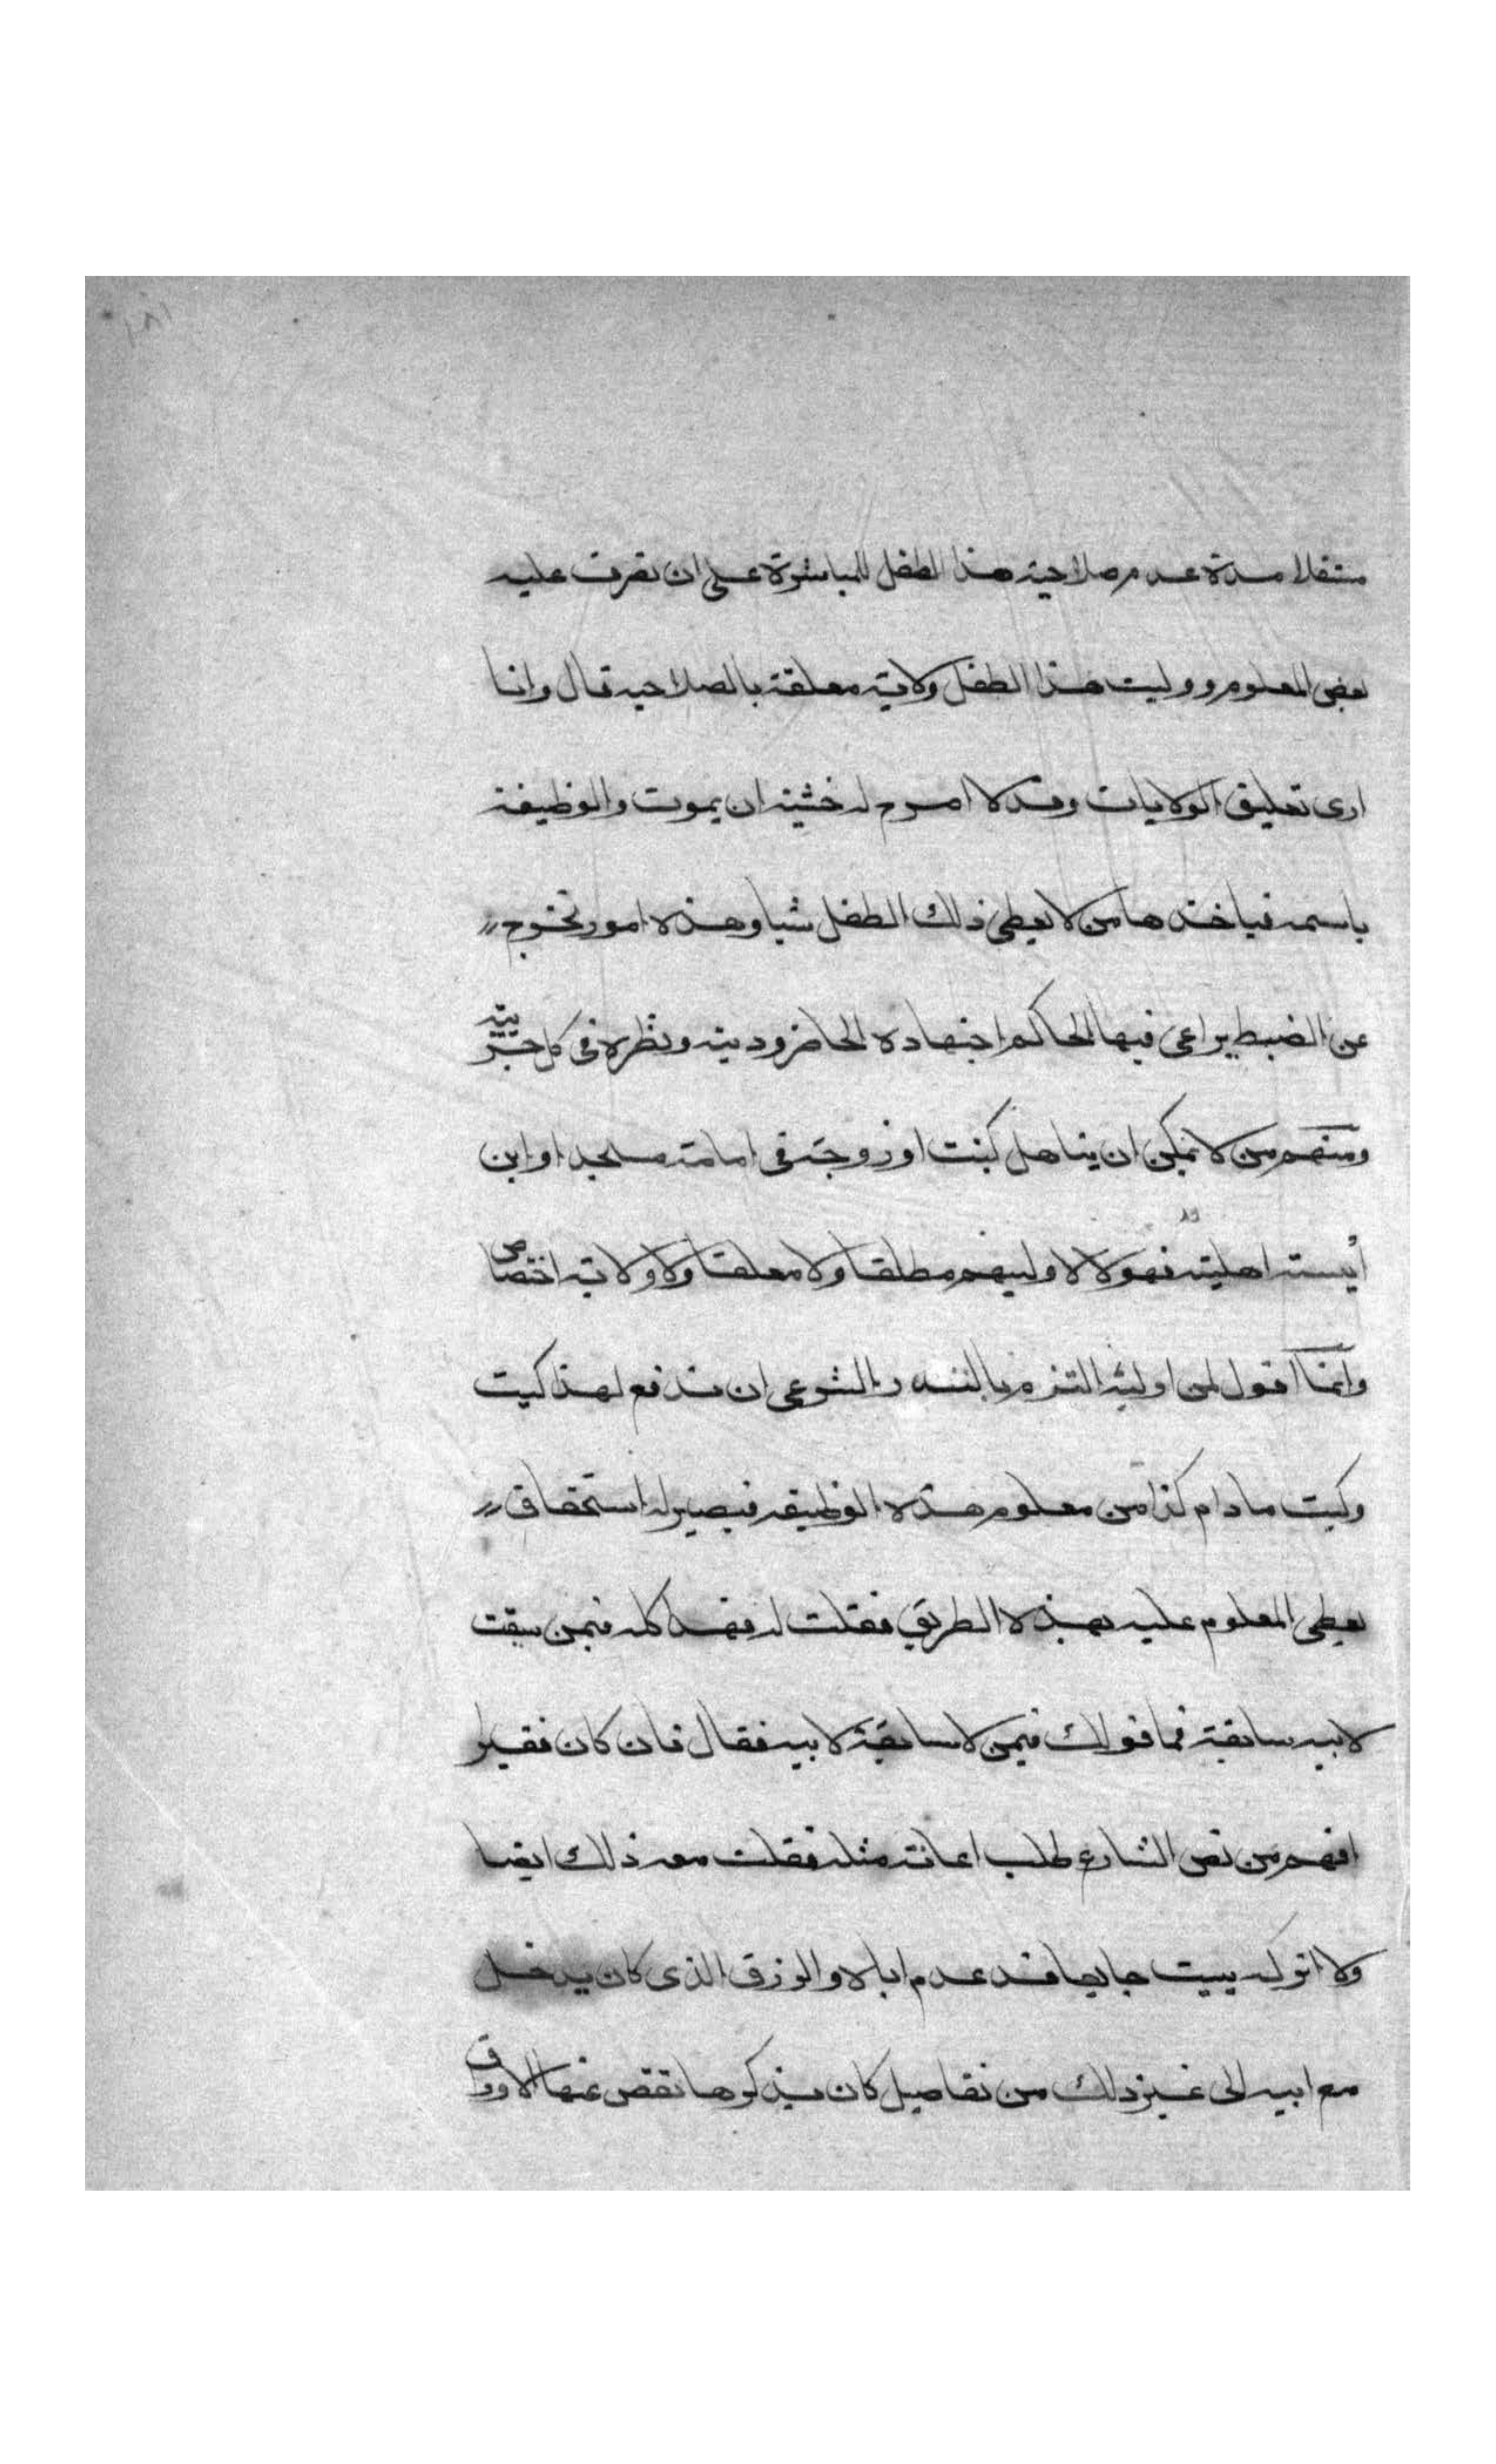 ١٨١
مستقلا مدة عدم صلاحية هذا الطفل للمباشرة على ان تصرف عليه
بعض المعلوم ووليت هذا الطفل ولاية معلقة بالصلاحيه قال وانا
ارى تعليق الولايات وقد لا اصرح له خشية ان يموت والوظيفة
باسمه فياخذها من لا يعطى ذلك الطفل شيا وهذه امور تخرج
عن الضبط يراعى فيها الحاكم اجتهاده الحاضر ودينه ونظره فى كل جزيية
ومنهم من لا يمكن ان يتاهل كبنت او زوجة فى امامة مسجد او ابن
أيست اهليته فهولا لا اوليهم مطلقا ولا معلقا ولا ولاية اختصاص
وانما اقول لمن اوليه التزم بالنذر الشرعى ان تدفع لهذا كيت
وكيت مادام كذا من معلوم هذه الوظيفه فيصير له استحقاق
بعض المعلوم عليه بهذه الطريق فقلت له فهذا كله فيمن سبقت
لابيه سابقة فما قولك فيمن لا سابقة لابيه فقال فان كان فقيرا
افهم من نص الشارع طلب اعانة مثله فقلت معه ذلك ايضا
ولا اتركه يبيت جايعا قد عدم اباه والرزق الذى كان يدخل
مع ابيه الى غير ذلك من تفاصيل كان يذكرها تقص عنها الاوراق